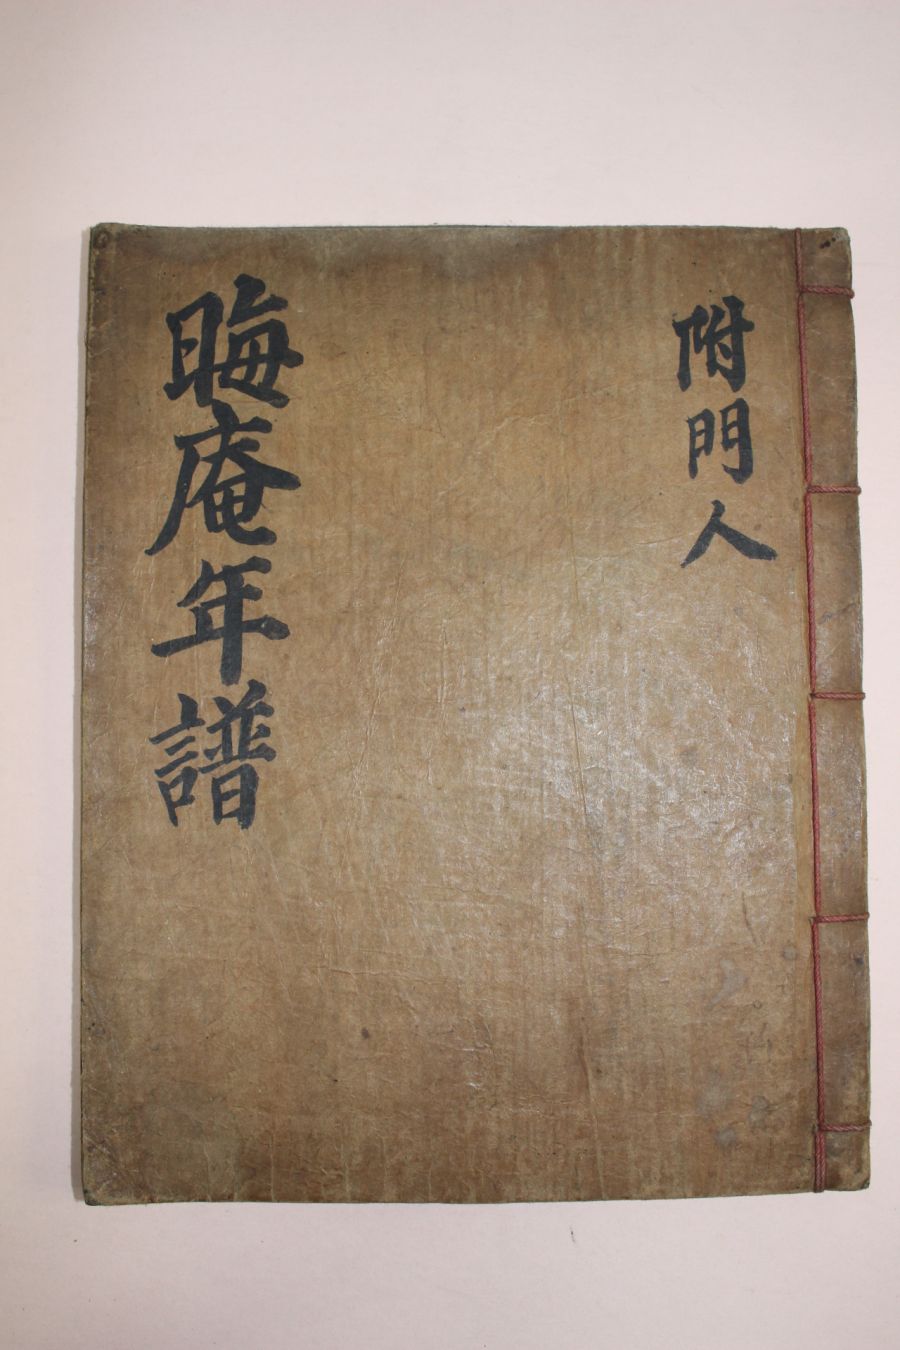 附門人
晦庵年譜